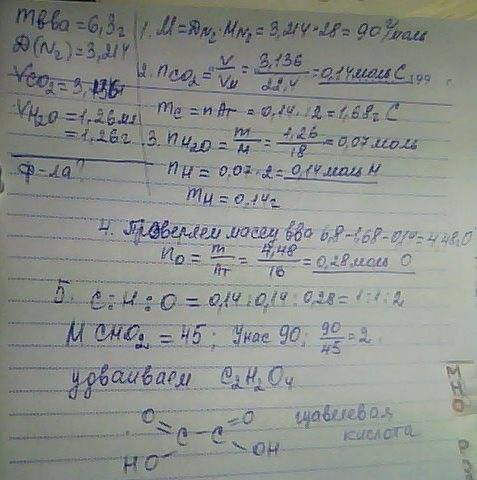 mвва = 6,3г
D(N₂) = 3,214
VCO₂ = 3,136
VH₂O = 1,26мл
= 1,26г
Ф-ла?
1. M = DN₂ · MN₂ = 3,214 · 28 = 90 г/моль
2. nCO₂ = V/Vм = 3,136/22,4 = 0,14 моль C
mC = nAт = 0,14 · 12 = 1,68г C
3. nH₂O = m/M = 1,26/18 = 0,07 моль
nH = 0,07 · 2 = 0,14 моль H
mH = 0,14г
4. Проверяем массу вва 6,3 - 1,68 - 0,14 = 4,48г O
nO = m/Aт = 4,48/16 = 0,28 моль O
5. C : H : O = 0,14 : 0,14 : 0,28 = 1 : 1 : 2
M CHO₂ = 45; У нас 90; 90/45 = 2
удваиваем C₂H₂O₄
O O щавелевая
C - C кислота
HO OH